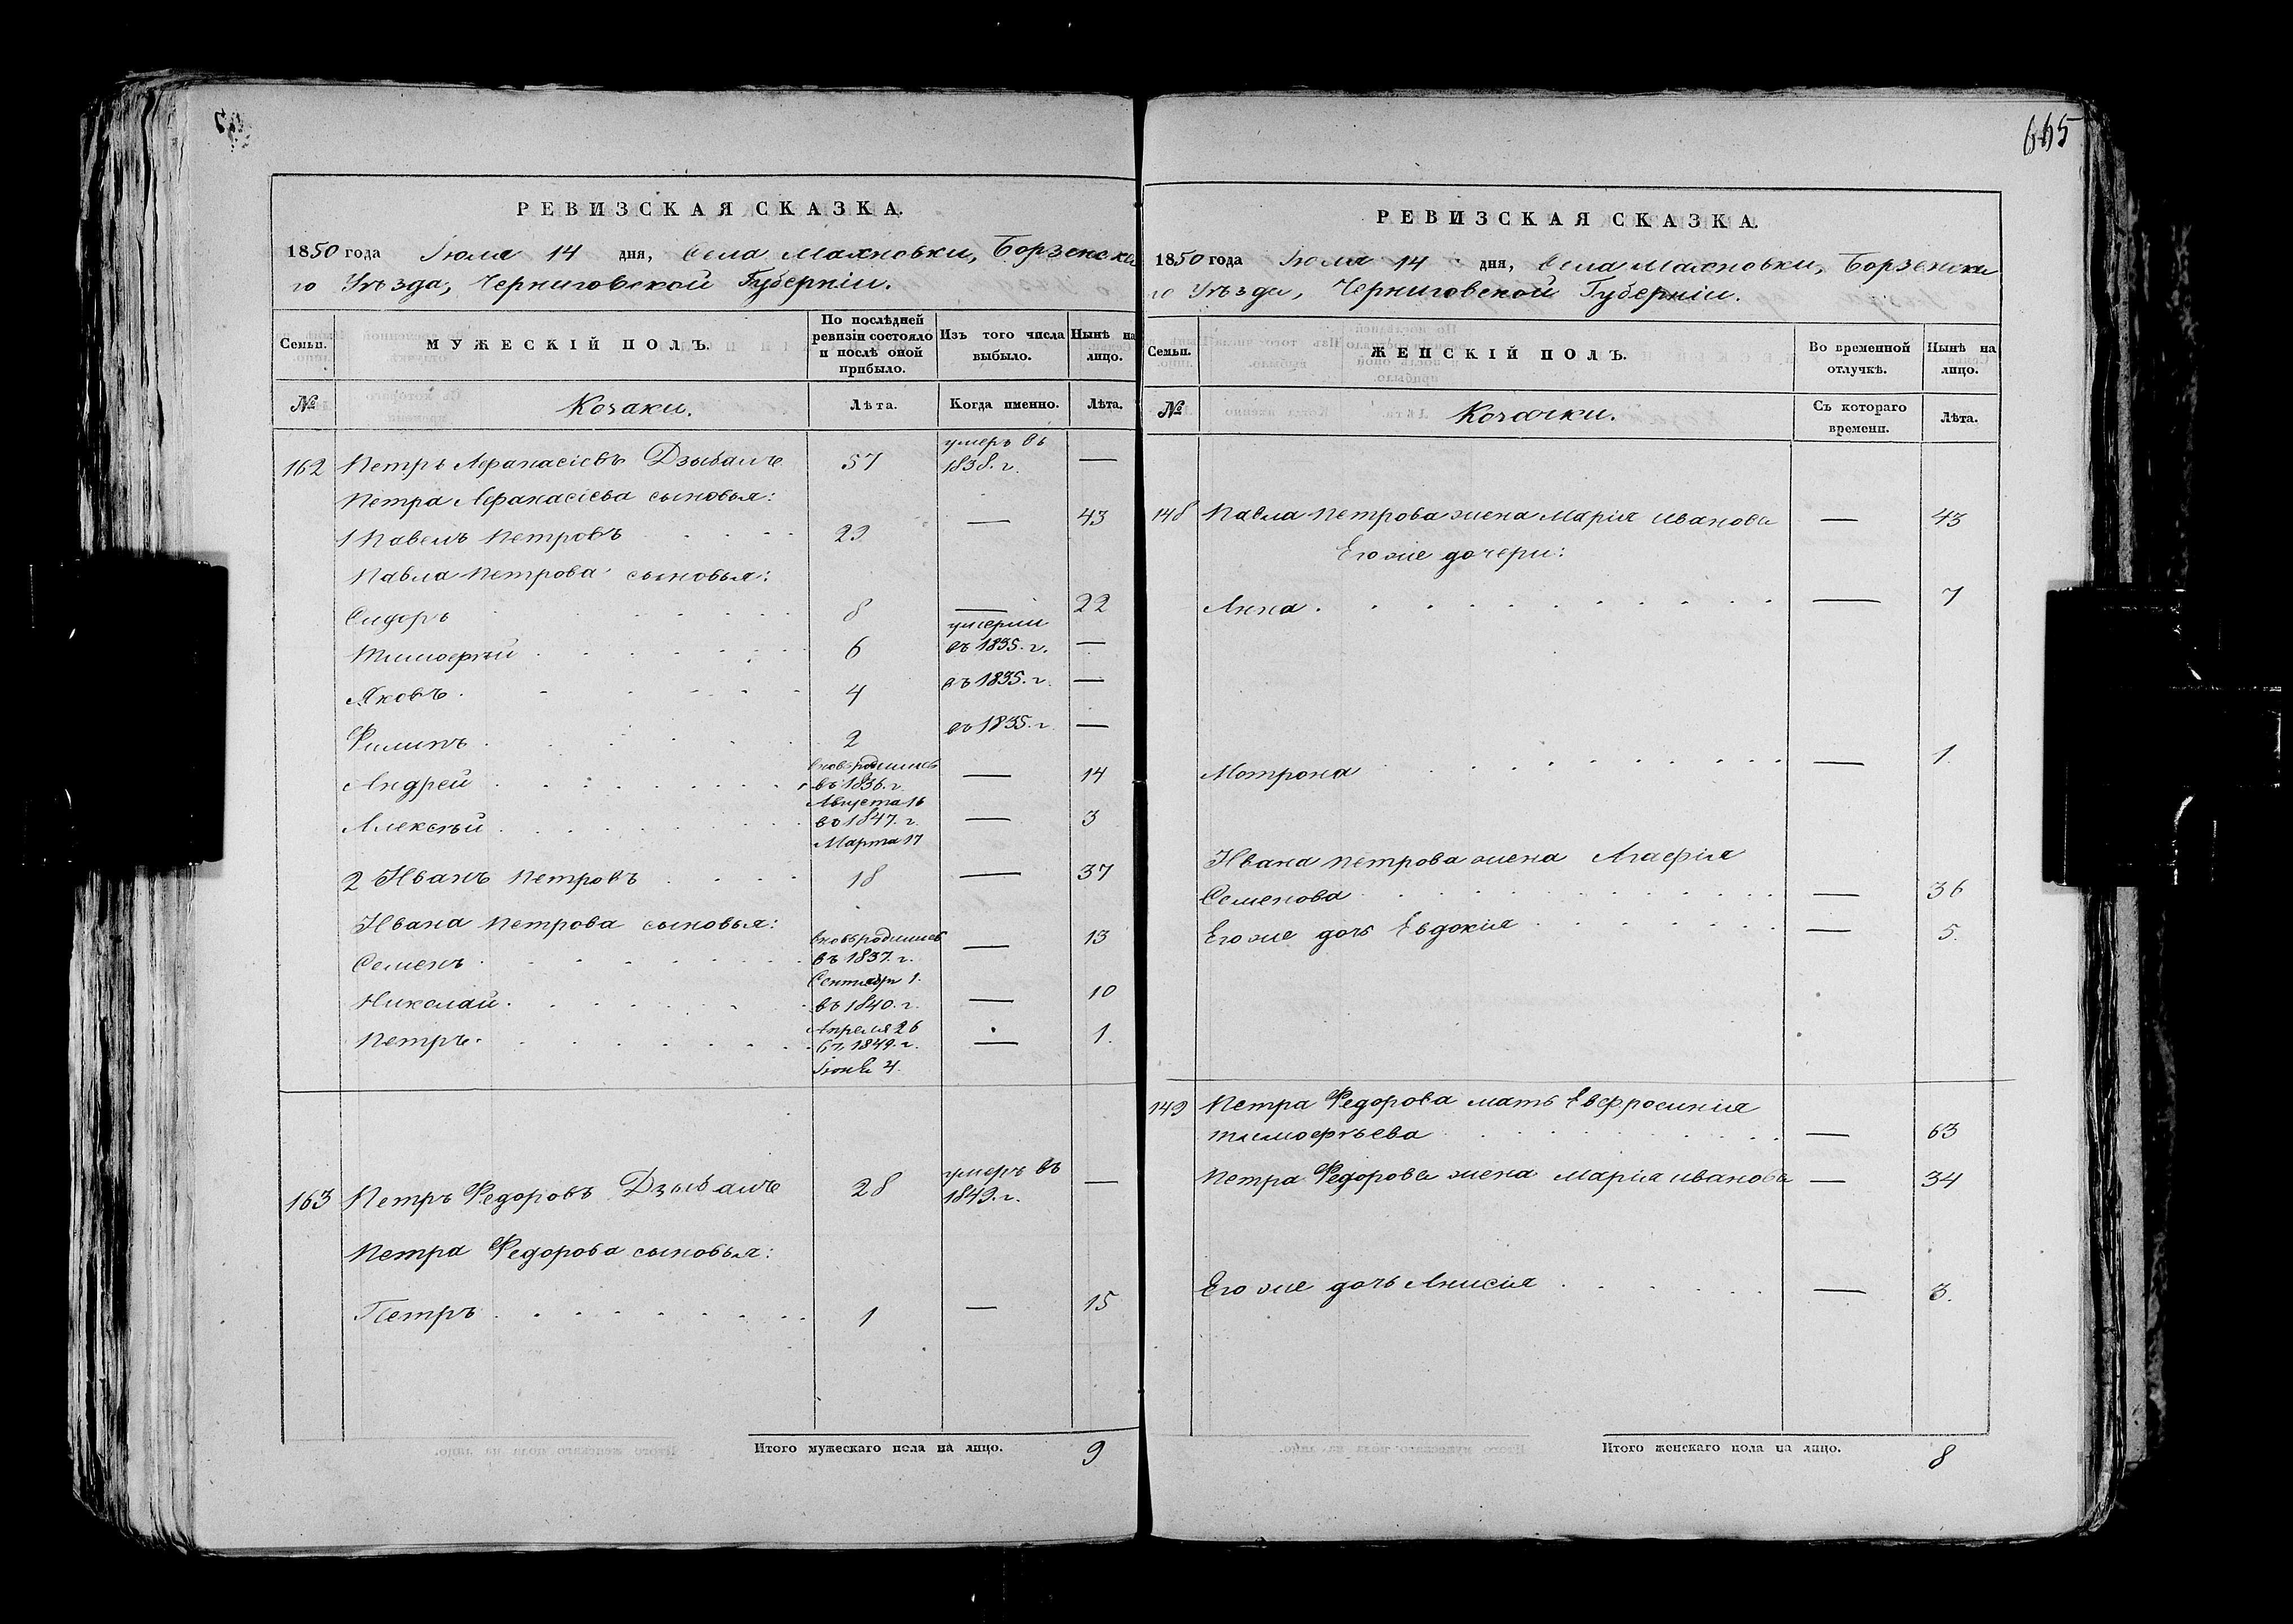 РЕВИЗСКАЯ СКАЗКА.
1850 года Іюля 14 дня, Села Махновки, Борзенска
го Уѣзда, Черниговской Губерніи.
Семьи.
МУЖЕСКІЙ ПОЛЪ.
По послѣдней ревизіи состояло и послѣ оной прибыло.
Изъ того числа выбыло.
Нынѣ на лицо.
№
Козаки.
Лѣта.
Когда именно.
Лѣта.
162 Петръ Афанасіевъ Дзыбалъ 57 умеръ въ 1838. г. —
Петра Афанасіева сыновья:
1 Павелъ Петровъ 29 — 43
Павла Петрова сыновья:
Сидоръ 8 — 22
Тимофѣй 6 умерли въ 1835. г. —
Яковъ 4 въ 1835. г. —
Филипъ 2 въ 1835. г. —
Андрей вновь родились въ 1836. г. Августа 16 — 14
Алексѣй въ 1847. г. Марта 17 — 3
2 Иванъ Петровъ 18 — 37
Ивана Петрова сыновья:
Семенъ вновь родились въ 1837. г. Сентябр 1. — 13
Николай въ 1840. г. Апреля 26 — 10
Петръ въ 1849. г. Іюня 4. — 1.
163 Петръ Федоровъ Дзыбалъ 28 умеръ въ 1849. г. —
Петра Федорова сыновья:
Петръ 1 — 15
Итого мужескаго пола на лицо. 9
665
РЕВИЗСКАЯ СКАЗКА.
1850 года Іюля 14 дня, Села Махновки, Борзенска
го Уѣзда, Черниговской Губерніи.
Семьи.
ЖЕНСКІЙ ПОЛЪ.
Во временной отлучкѣ.
Нынѣ на лицо.
№
Козачки.
Съ котораго времени.
Лѣта.
148 Павла Петрова жена Марія Иванова — 43
Его же дочери:
Анна — 7
Мотрона — 1
Ивана Петрова жена Агафія
Семенова — 36
Его же дочь Евдокія — 5.
149 Петра Федорова мать Евфросинія
Тимофѣева — 63
Петра Федорова жена Марія Иванова — 34
Его же дочь Анисія — 3.
Итого женскаго пола на лицо. 8